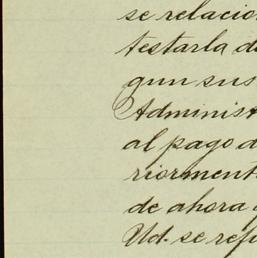 se relacio
testarla d
gun sus
Administ
al pago d
riorment
de ahora
Ud. se ref